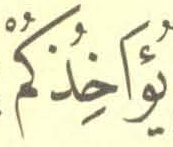 يُؤَاخِذُكُمْ